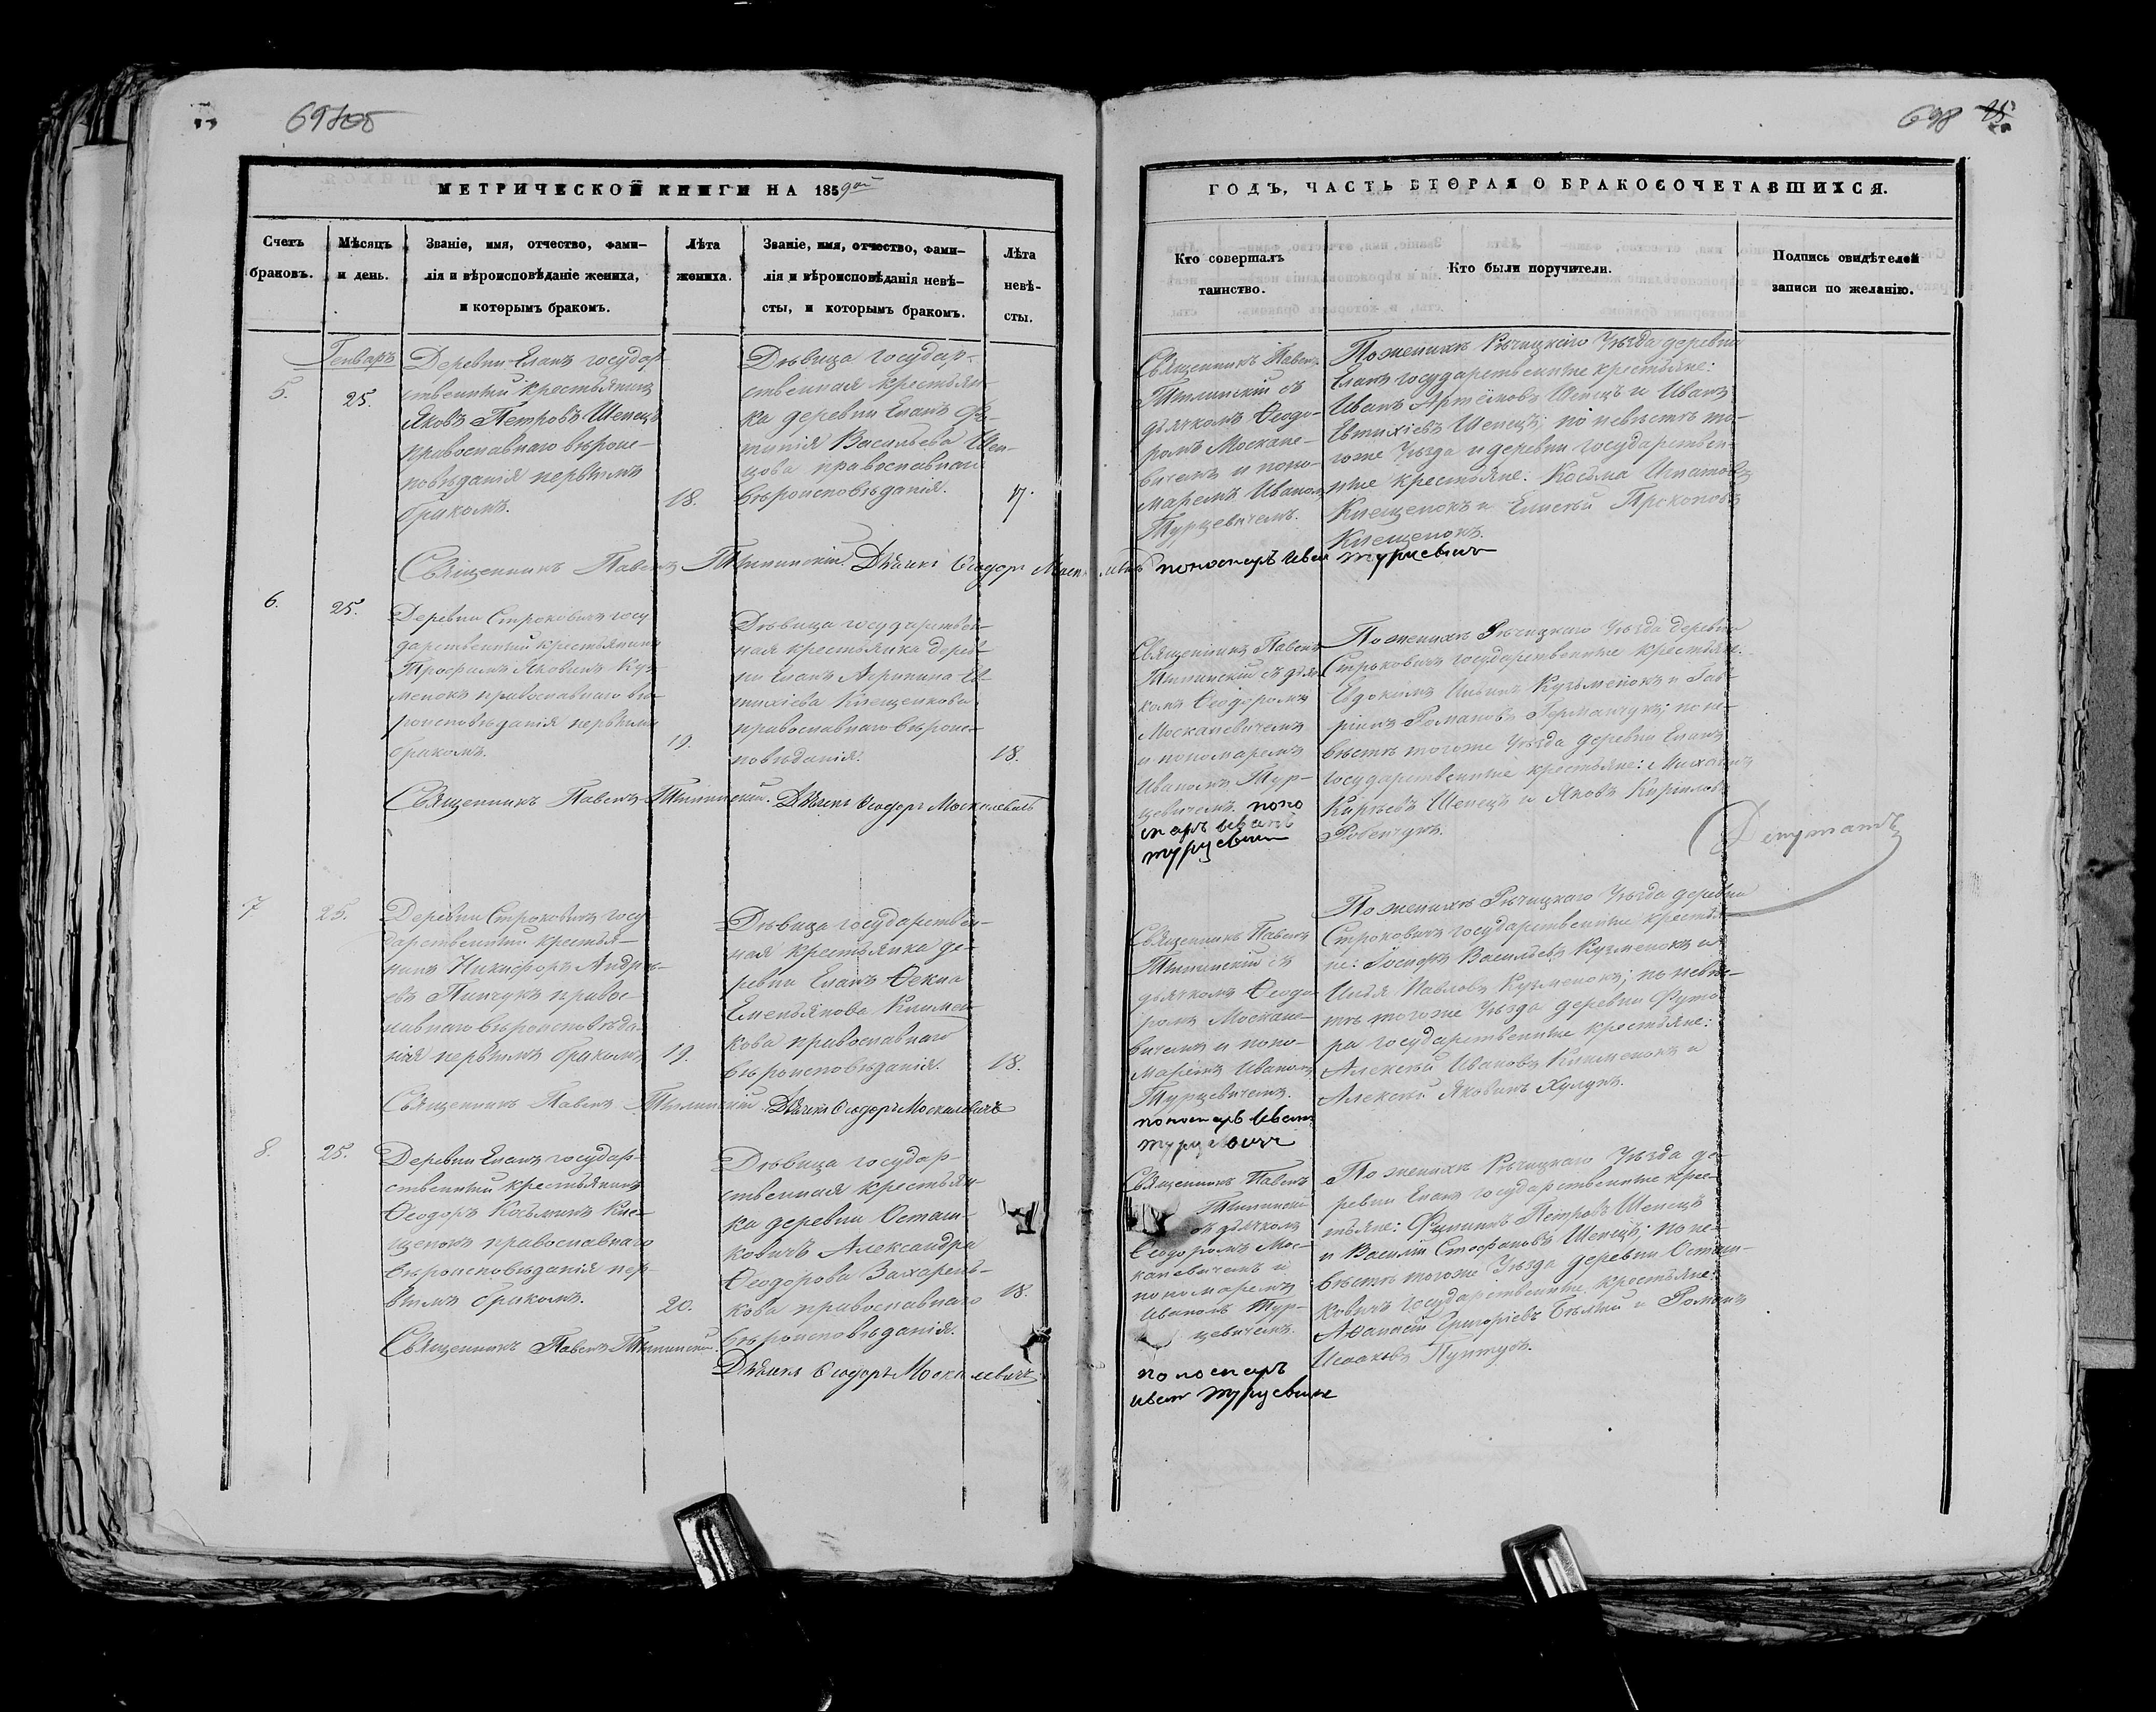 698 25
МЕТРИЧЕСКОЙ КНИГИ НА 1859ый
ГОДЪ, ЧАСТЬ ВТОРАЯ О БРАКОСОЧЕТАВШИХСЯ.
Счетъ
браковъ.
Мѣсяцъ
и день.
Званіе, имя, отчество, фами-
лія и вѣроисповѣданіе жениха,
и которымъ бракомъ.
Лѣта
жениха.
Званіе, имя, отчество, фами-
лія и вѣроисповѣданія невѣ-
сты, и которымъ бракомъ.
Лѣта
невѣ-
сты.
Кто совершалъ
таинство.
Кто были поручители.
Подпись свидѣтелей
записи по желанію.
Генварь
5.
25.
Деревни Еланъ государ-
ственный крестьянинъ
Яковъ Петровъ Шепецъ
православнаго вѣроис-
повѣданія первымъ
бракомъ.
18.
Дѣвица государ-
ственная крестьян-
ка деревни Еланъ Фо-
тинія Васильева Шеп-
цова православнаго
вѣроисповѣданія.
17.
Священникъ Павелъ
съ
дьячкомъ Ѳеодо-
ромъ Москале-
вичемъ и поно-
маремъ Иваномъ
Турцевичемъ.
По женихѣ Рѣчицкаго Уѣзда деревни
Еланъ государственные крестьяне:
Иванъ Шепецъ и Иванъ
Евтихіевъ Шепецъ; по невѣстѣ то-
гоже Уѣзда и деревни государствен-
ные крестьяне: Косьма Игнатовъ
Клещенокъ и Елисей Прокоповъ
Клещенокъ.
Священникъ Павелъ Дьячекъ Ѳеодоръ Пономарь Иван Турцевич
6.
25.
Деревни Строковичъ госу
дарственный крестьянинъ
Трофимъ Яковинъ Куз-
менокъ православнаго вѣ-
роисповѣданія первымъ
бракомъ.
19.
Дѣвица государствен-
ная крестьянка дерев-
ни Еланъ Агрипина Ев-
тихіева Клещенкова
православнаго вѣроис-
повѣданія.
18.
Священникъ Павелъ
съ дьяч-
комъ Ѳеодоромъ
Москалевичемъ
и пономаремъ
Иваномъ Тур-
цевичемъ. поно
марь Иванъ
Турцевич
По женихѣ Рѣчицкаго Уѣзда деревни
Строковичъ государственные крестьяне:
Евдокимъ Ильинъ Кузьменокъ и Гав-
ріилъ Романовъ Германчукъ; по не-
вѣстѣ тогоже Уѣзда деревни Еланъ
государственные крестьяне: Михаилъ
Шепецъ и Яковъ Кириловъ
Священникъ Павелъ Дьячекъ Ѳеодоръ Москалевичъ
Депутатъ
7
25.
Деревни Строковичъ госу
дарственный крестья-
нинъ Никифоръ Андре-
евъ Пинчукъ правос-
лавнаго вѣроисповѣда-
нія первымъ бракомъ
19.
Дѣвица государствен-
ная крестьянка де-
ревни Еланъ Ѳекла
Емельянова Климен-
кова православнаго
вѣроисповѣданія.
18.
Священникъ Павелъ
съ
дьячкомъ Ѳеодо-
ромъ Москале-
вичемъ и поно-
маремъ Иваномъ
Турцевичемъ.
пономарь Иван
Турцевич
По женихѣ Рѣчицкаго Уѣзда деревни
Строковичъ государственные крестья-
не: Іосифъ Васильевъ Кузменокъ и
Илья Павловъ Кузменокъ; по невѣс-
тѣ тогоже Уѣзда деревни Футо-
ра государственные крестьяне:
Алексѣй Ивановъ Клименокъ и
Алексѣй Яковинъ Хулукъ.
Священникъ Павелъ Дьячекъ Ѳеодоръ Москалевичъ
8.
25.
Деревни Еланъ государ-
ственный крестьянинъ
Ѳеодоръ Косьминъ Кле-
щенокъ православнаго
вѣроисповѣданія пер-
вымъ бракомъ.
20.
Дѣвица государ-
ственная крестьян-
ка деревни Осташ-
ковичъ Александра
Ѳеодорова Захарень-
кова православнаго
вѣроисповѣданія.
18.
Священникъ Павелъ
съ дьячкомъ
Ѳеодоромъ Мос-
калевичемъ и
пономаремъ
Иваномъ Тур-
цевичемъ.
пономарь
Иван Турцевич
По женихѣ Рѣчицкаго Уѣзда де-
ревни Еланъ государственные крес-
тьяне: Филипъ Петровъ Шепецъ
и Василій Стефановъ Шепецъ; по не-
вѣстѣ тогоже Уѣзда деревни Осташ-
ковичъ государственные крестьяне:
Аѳанасій Григоріевъ Бѣлый и Романъ
Исааковъ
Священникъ Павелъ
Дьячекъ Ѳеодоръ Москалевичъ